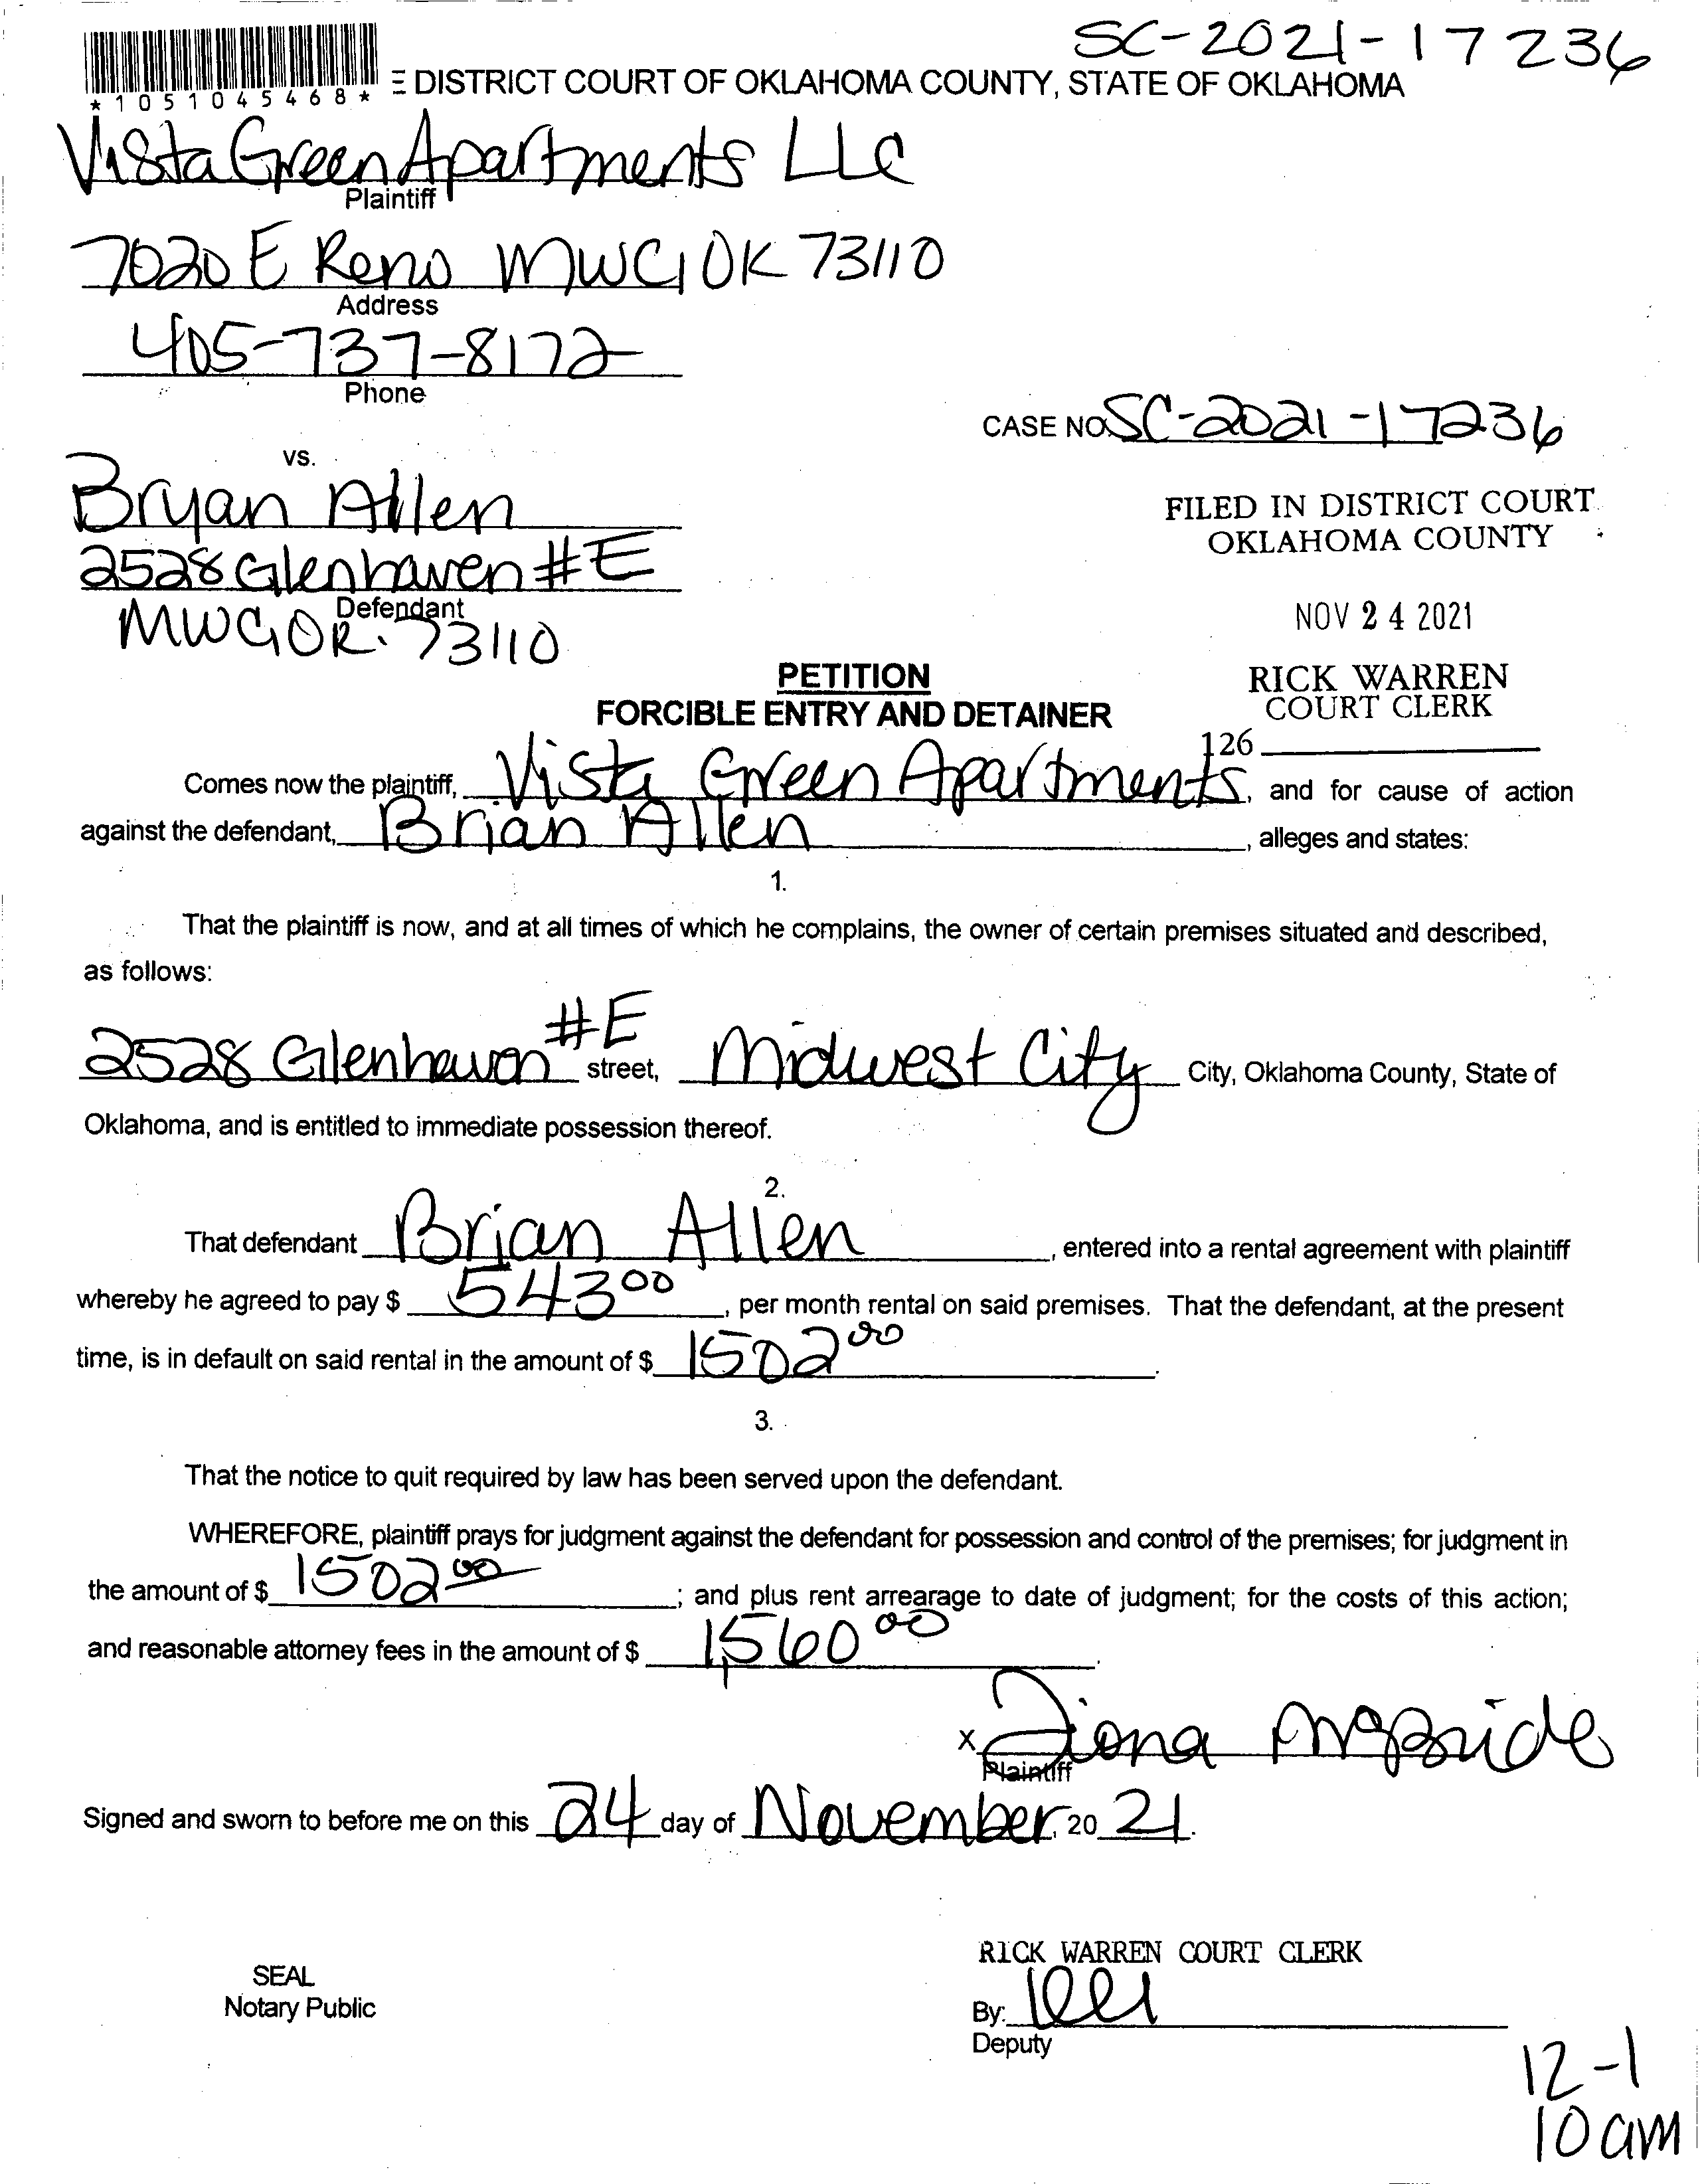 SC-2021-17236
E DISTRICT COURT OF OKLAHOMA COUNTY, STATE OF OKLAHOMA
*1051045468*
Vista Green Apartments LLC
Plaintiff
7020 E Reno MWC, OK 73110
Address
405-737-8172
Phone
CASE NO. SC-2021-17236
vs.
Bryan Allen
2528 Glenhaven #E
Defendant
MWC, OK. 73110
FILED IN DISTRICT COURT
OKLAHOMA COUNTY
NOV 24 2021
RICK WARREN
COURT CLERK
126
PETITION
FORCIBLE ENTRY AND DETAINER
Comes now the plaintiff, Vista Green Apartments, and for cause of action
against the defendant, Brian Allen, alleges and states:
1.
That the plaintiff is now, and at all times of which he complains, the owner of certain premises situated and described,
as follows:
2528 Glenhaven #E street, Midwest City City, Oklahoma County, State of
Oklahoma, and is entitled to immediate possession thereof.
2.
That defendant Brian Allen, entered into a rental agreement with plaintiff
whereby he agreed to pay $ 543 00, per month rental on said premises. That the defendant, at the present
time, is in default on said rental in the amount of $ 1502 00.
3.
That the notice to quit required by law has been served upon the defendant.
WHEREFORE, plaintiff prays for judgment against the defendant for possession and control of the premises; for judgment in
the amount of $ 1502 00; and plus rent arrearage to date of judgment; for the costs of this action;
and reasonable attorney fees in the amount of $ 1,560 00.
x Ziona McBride
Plaintiff
Signed and sworn to before me on this 24 day of November, 20 21.
RICK WARREN COURT CLERK
SEAL
Notary Public
By:
Deputy
12-1
10 am